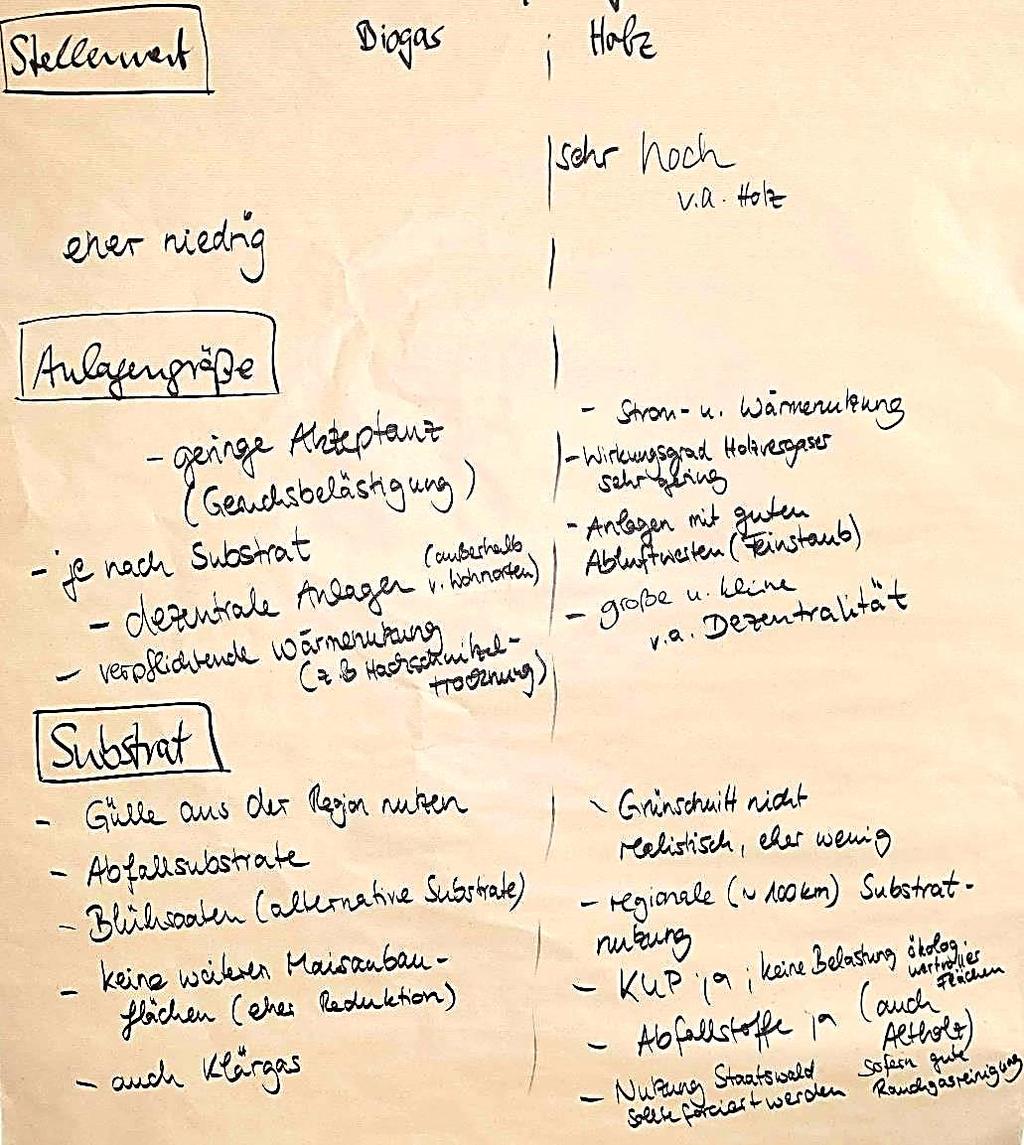 Stellenwert
Biogas
Holz
sehr hoch
v.a. Holz
eher niedrig
Anlagengröße
- geringe Akzeptanz
(Geruchsbelästigung)
- je nach Substrat
- dezentrale Anlagen (außerhalb
v. Wohnorten)
- verpflichtende Wärmenutzung
(z.B Hackschnitzel-
trocknung)
- Strom- u. Wärmenutzung
- Wirkungsgrad Holzvergaser
sehr gering
- Anlagen mit guten
Abluftwerten (Feinstaub)
- große u. kleine
v.a. Dezentralität
Substrat
- Gülle aus der Region nutzen
- Abfallsubstrate
- Blühsaaten (alternative Substrate)
- keine weiteren Maisanbau-
flächen (eher Reduktion)
- auch Klärgas
- Grünschnitt nicht
realistisch, eher wenig
- regionale (~ 100km) Substrat-
nutzung
- KUP ja; keine Belastung ökolog.
wertvoller
Flächen
- Abfallstoffe ja (auch
Altholz)
sofern gute
Rauchgasreinigung
- Nutzung Staatswald
sollte forciert werden